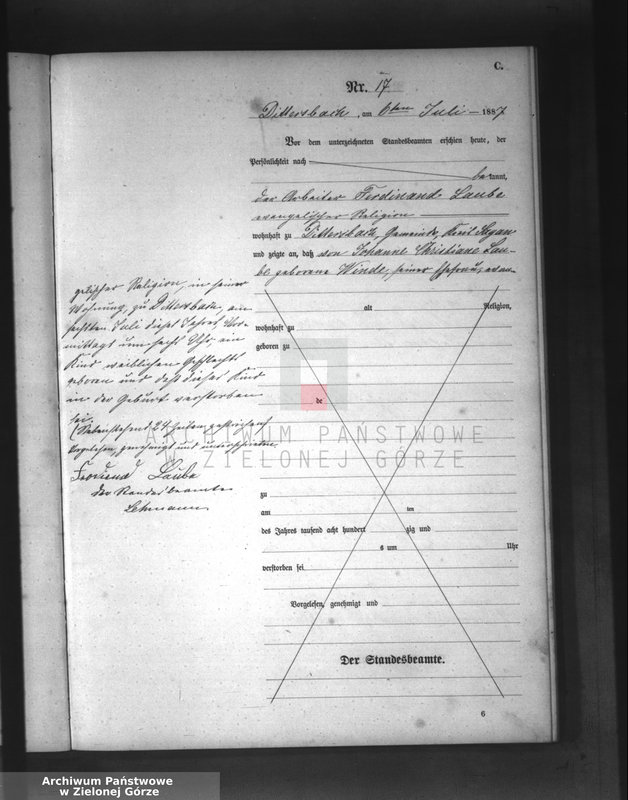 C.
Nr. 17.
Dittersbach, am 6ten Juli 1887
Vor dem unterzeichneten Standesbeamten erschien heute, der
Persönlichkeit nach
be kannt,
der Arbeiter Ferdinand Laube
evangelischer Religion
wohnhaft zu Dittersbach, Gemeinde, Kreis Sagan
und zeigte an, daß von Johanne Christiane Lau-
be geborene Winde, seiner Ehefrau, evan-
gelischer Religion, in seiner
Wohnung, zu Dittersbach, am
sechsten Juli dieses Jahres, Vor-
mittags um sechs Uhr ein
Kind weiblichen Geschlechts
geboren und daß dieses Kind
in der Geburt verstorben
sei.
(Nebenstehend 24 Zeilen gestrichen)
Vorgelesen, genehmigt und unterschrieben
Ferdinand Laube
Der Standesbeamte
Lehmann.
alt Religion,
wohnhaft zu
geboren zu
de
ARCHIWUM PAŃSTWOWE
W ZIELONEJ GÓRZE
zu
am ten
des Jahres tausend acht hundert zig und
s um Uhr
verstorben sei
Vorgelesen, genehmigt und
Der Standesbeamte.
6
Archiwum Państwowe
w Zielonej Górze